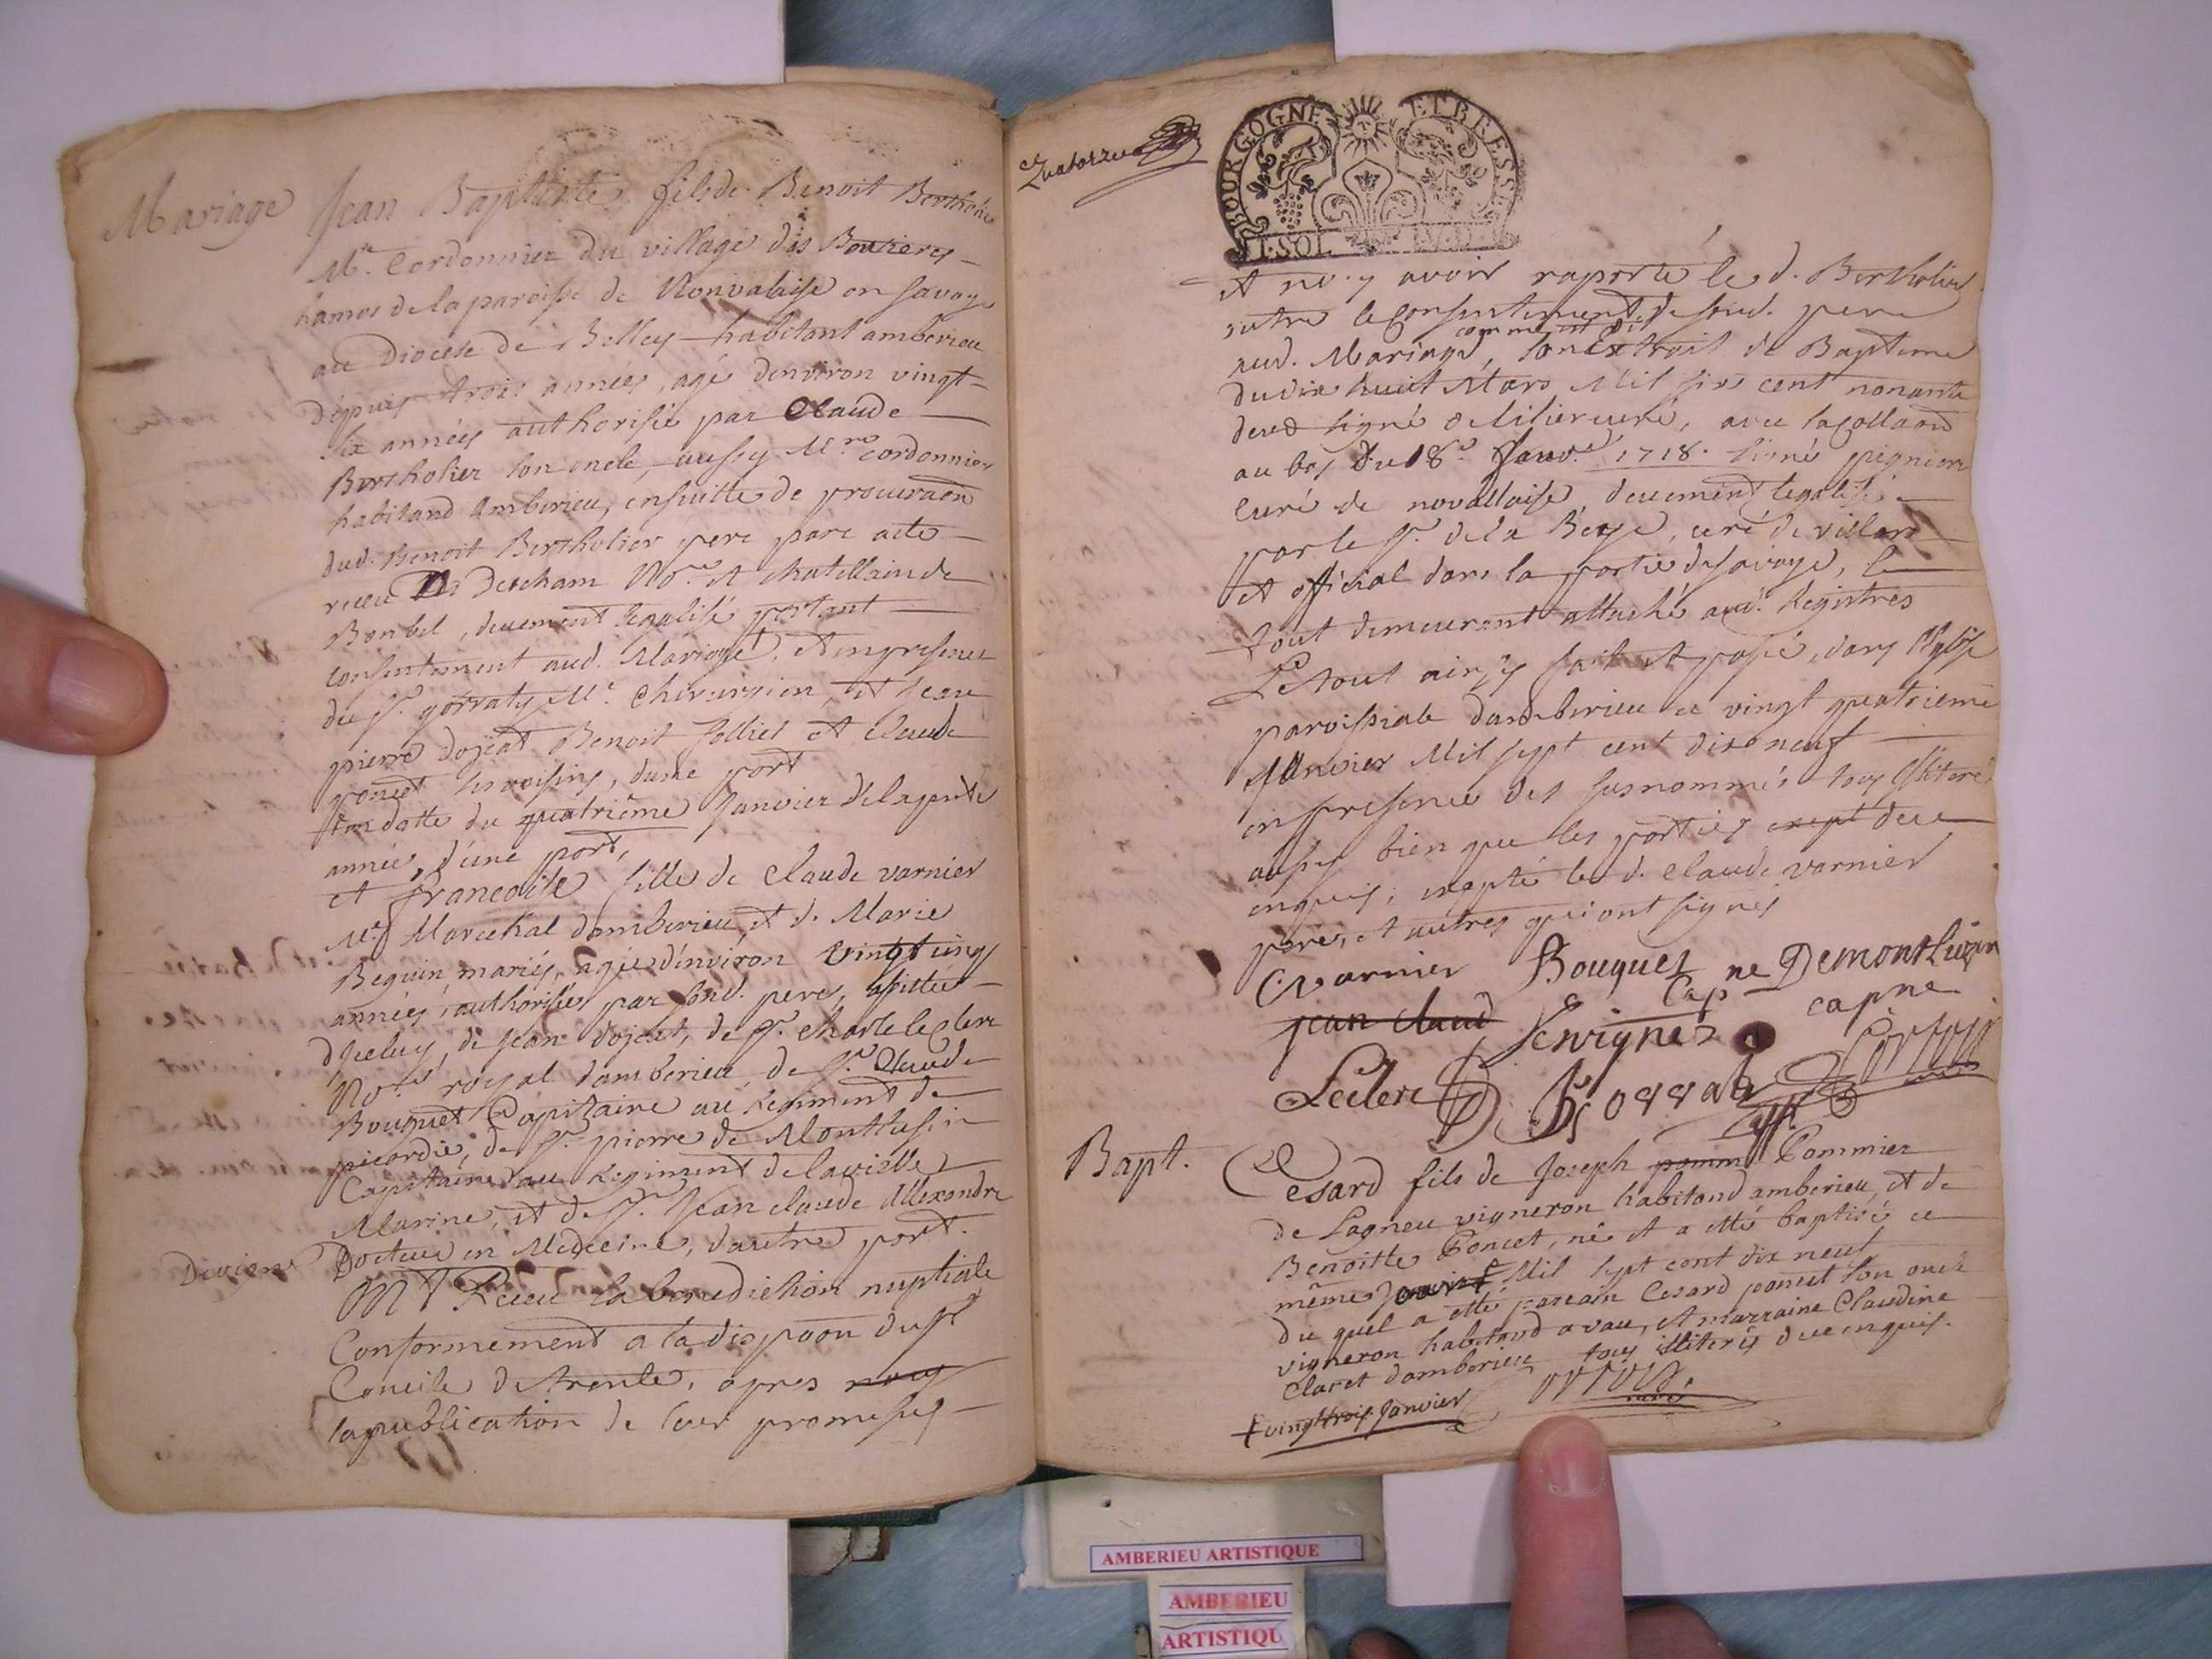 Mariage
Jean Baptiste fils de Benoit Bertholier
Mre. Cordonnier du village des
hamos de la paroisse de Nonvalaise en Savoye
au Diocese de Belley habitant amberieu
depuis trois années, agé denviron vingt
six années authorisée par Claude
Bertholier son oncle, aussy Mre. cordonnier
habitand Amberieu, ensuitte de procuraon
dud. Benoit Bertholier pere parc acte
receu Descham Nore. et chatellain de
Bonbel, deuement legalisé portant
consentement aud. Mariage, et en presence
du sr. gorraty Me. chirursien, et Jean
pierre dojeat Benoit Jolliet et Claude
poncet ses voisins, dune part
dotte du quatrième Janvier de la pnte
année, d'une part,
et francoise fille de Claude varnier
Mre. Marechal damberieu, et d. Marie
Beguin mariés, agée d'environ vingt cinq
années, authorisée par sond. pere, assistée
d'Iceluy, de Jean dojeat, de sr. Charle leclerc
Nore. royal damberieu, de sr. Claude
Bouquet Capitaine au Regiment de
picardie, de sr. pierre de Montlusin
Capitaine au Regiment de la vielle
Marine, et de sr. Jean claude Allexandre
Docteur en Medecine, d'autre part.
ont Receu la benediction nuptiale
Conformement a la dispoon du st
Concile de trente, apres
la publication de leur promesses
Quatorze
BOURGOGNE ET BRESSE
I. SOL
et no.y avoir raporté le d. Bertholier
outre le consentement de sond. pere
comme est dit
aud. Mariage, son Extrait de Bapteme
du dix huit Mars Mil six cent nonante
deux signé curé, avec la collaon
au bas du 18e. Janv. 1718. signé pignier
curé de novallaise, deuement legalisé
par le sr. de la Beye, curé de villars
et official dans la partie de savoye, le
tout demeurant attaché aud. Registres
Le tout ainsy fait et passé, dans l'Eglise
paroissiale damberieu ce vingt quatrieme
Janvier Mil sept cent dix neuf
en presence des susnommés tous illiteré
aussy bien que les parties exept deue
enquis, exepté le d. claude varnier
pere, et autres qui ont signés
C varnier Bouquet Cap ne Demontluzin
jean claud Sevigne capne
Leclerc Gorraty
Bapt.
Cesard fils de Joseph pomm Pommier
de Lagneu vigneron habitand amberieu, et de
Benoitte Poncet, né et a etté baptisé ce
même Mil sept cent dix neuf
du quel a etté parrain Cesard poncet son oncle
vigneron habitand a vau, et marraine Claudine
Claret damberieu tous illiterés deue enquis.
+ vingt trois Janvier
AMBERIEU ARTISTIQUE
AMBERIEU
ARTISTIQU